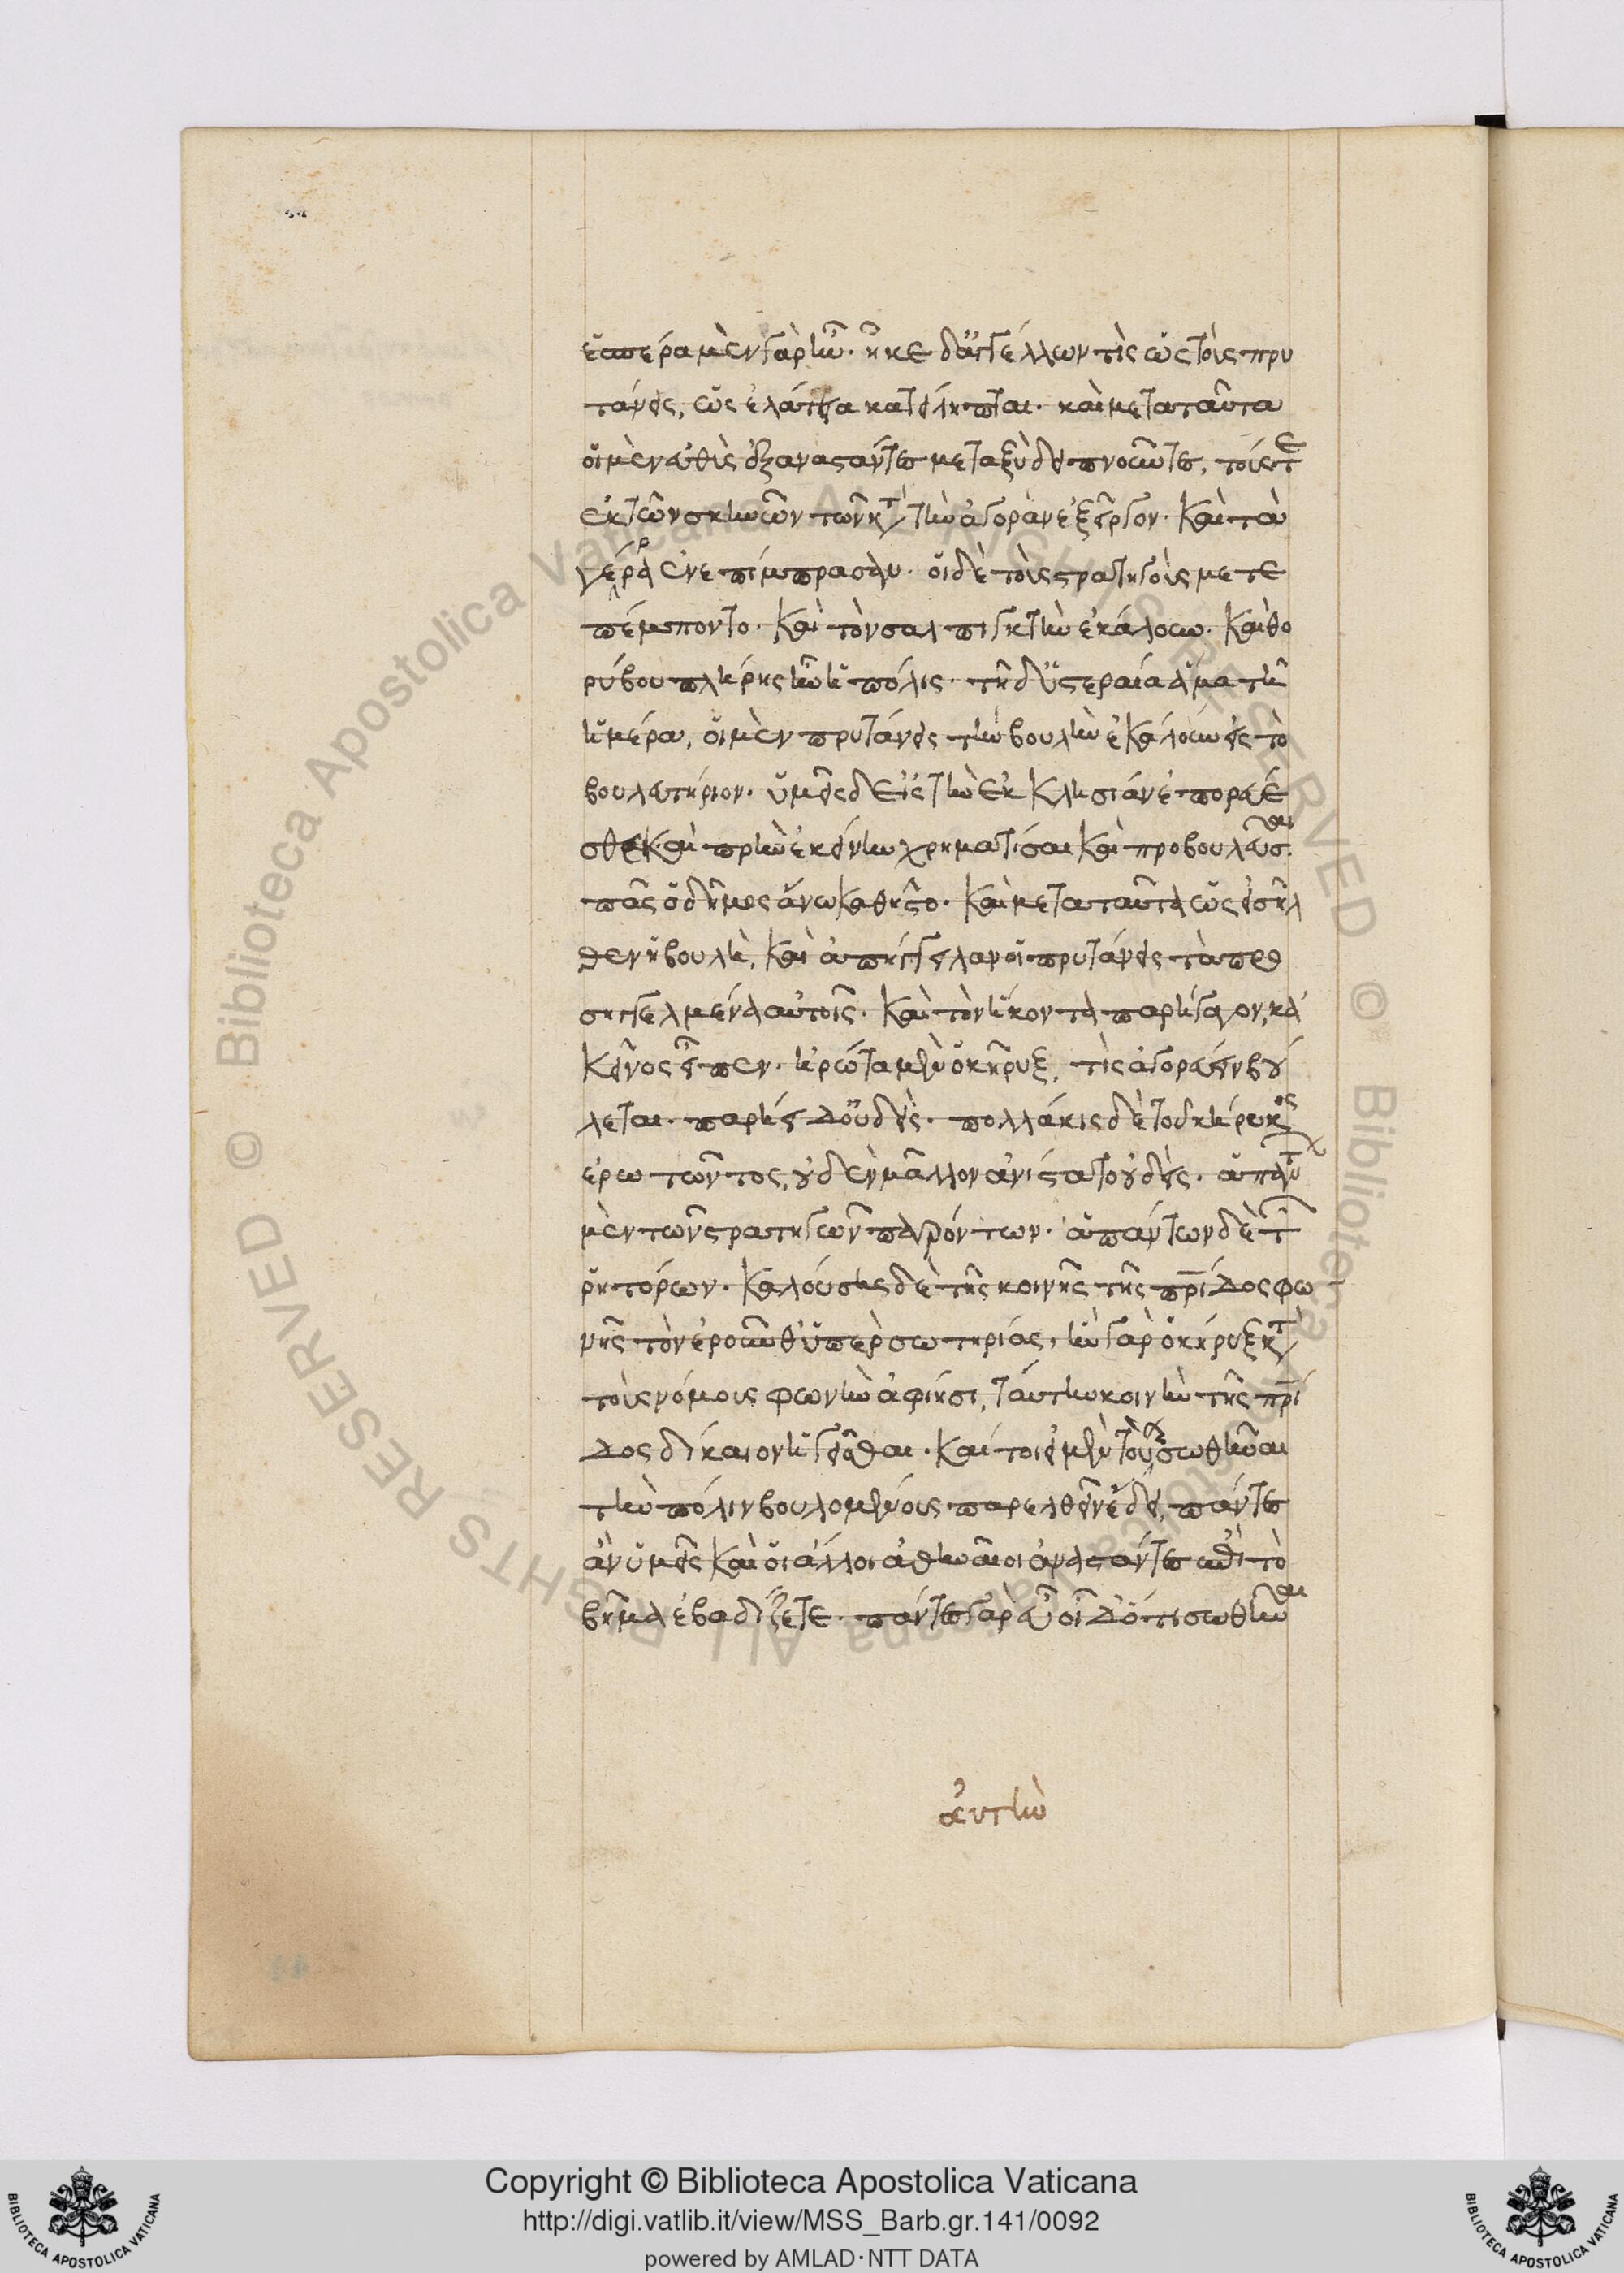 ἑσπέρα μὲν γὰρ ἦν. ἧκε δ' ἀγγέλλων τὶς ὡς τοὺς πρυ
τάνεις, ὡς ἐλάτεια κατείληπται. καὶ μετὰ ταῦτα
οἱ μὲν εὐθὺς ἐξαναστάντες μεταξὺ δειπνοῦντες, τούς τε
ἐκ τῶν σκηνῶν τῶν κατὰ τὴν ἀγορὰν ἐξεῖργον. καὶ τὰ
γέρρα ἐνεπίμπρασαν. οἱ δὲ τοὺς στρατηγοὺς μετε
πέμποντο. καὶ τὸν σαλπιγκτὴν ἐκάλουν. καὶ θο
ρύβου πλήρης ἦν ἡ πόλις. τῇ δ' ὑστεραία ἅμα τῆ
ἡμέρα, οἱ μὲν πρυτάνεις τὴν βουλὴν ἐκάλουν εἰς τὸ
βουλευτήριον. ὑμεῖς δ' εἰς τὴν ἐκκλησίαν ἐπορεύε
σθε καὶ πρὶν ἐκείνην χρηματίσαι καὶ προβουλεῦσαι
πᾶς ὁ δῆμος ἄνω καθῆστο. καὶ μετὰ ταῦτα ὡς εἰσῆλ
θεν ἡ βουλὴ, καὶ ἀπήγγειλαν οἱ πρυτάνεις τὰ προ
σηγγελμένα αὐτοῖς. καὶ τὸν ἥκοντα παρήγαγον, κα
κεῖνος εἶπεν. ἠρώτα μὲν ὁ κῆρυξ, τὶς ἀγορεύειν βού
λεται. παρήει δ' οὐδείς. πολλάκις δὲ τοῦ κήρυκος
ἐρωτῶντος, οὐδὲν μᾶλλον ἀνίστατ' οὐδείς. ἁπάντων
μὲν τῶν στρατηγῶν παρόντων. ἁπάντων δὲ τῶν
ῥητόρων. καλούσης δὲ τῆς κοινῆς τῆς πρίδος φω
νῆς τὸν ἐροῦνθ' ὑπὲρ σωτηρίας, ἣν γὰρ ὁ κήρυξ κατὰ
τοὺς νόμους φωνὴν ἀφίησι, ταύτην κοινὴν τῆς πρί
δος δίκαιον ἡγεῖσθαι. καίτοι εἰ μὲν τοὺς σωθῆναι
τὴν πόλιν βουλομένους παρελθεῖν ἔδει, πάντες
ἂν ὑμεῖς καὶ οἱ ἄλλοι ἀθηναῖοι ἀναστάντες ἐπὶ τὸ
βῆμα ἐβαδίζετε. πάντες γὰρ εὖ οἶδ' ὅτι σωθῆναι
αὐτὴν
Copyright © Biblioteca Apostolica Vaticana
http://digi.vatlib.it/view/MSS_Barb.gr.141/0092
powered by AMLAD·NTT DATA